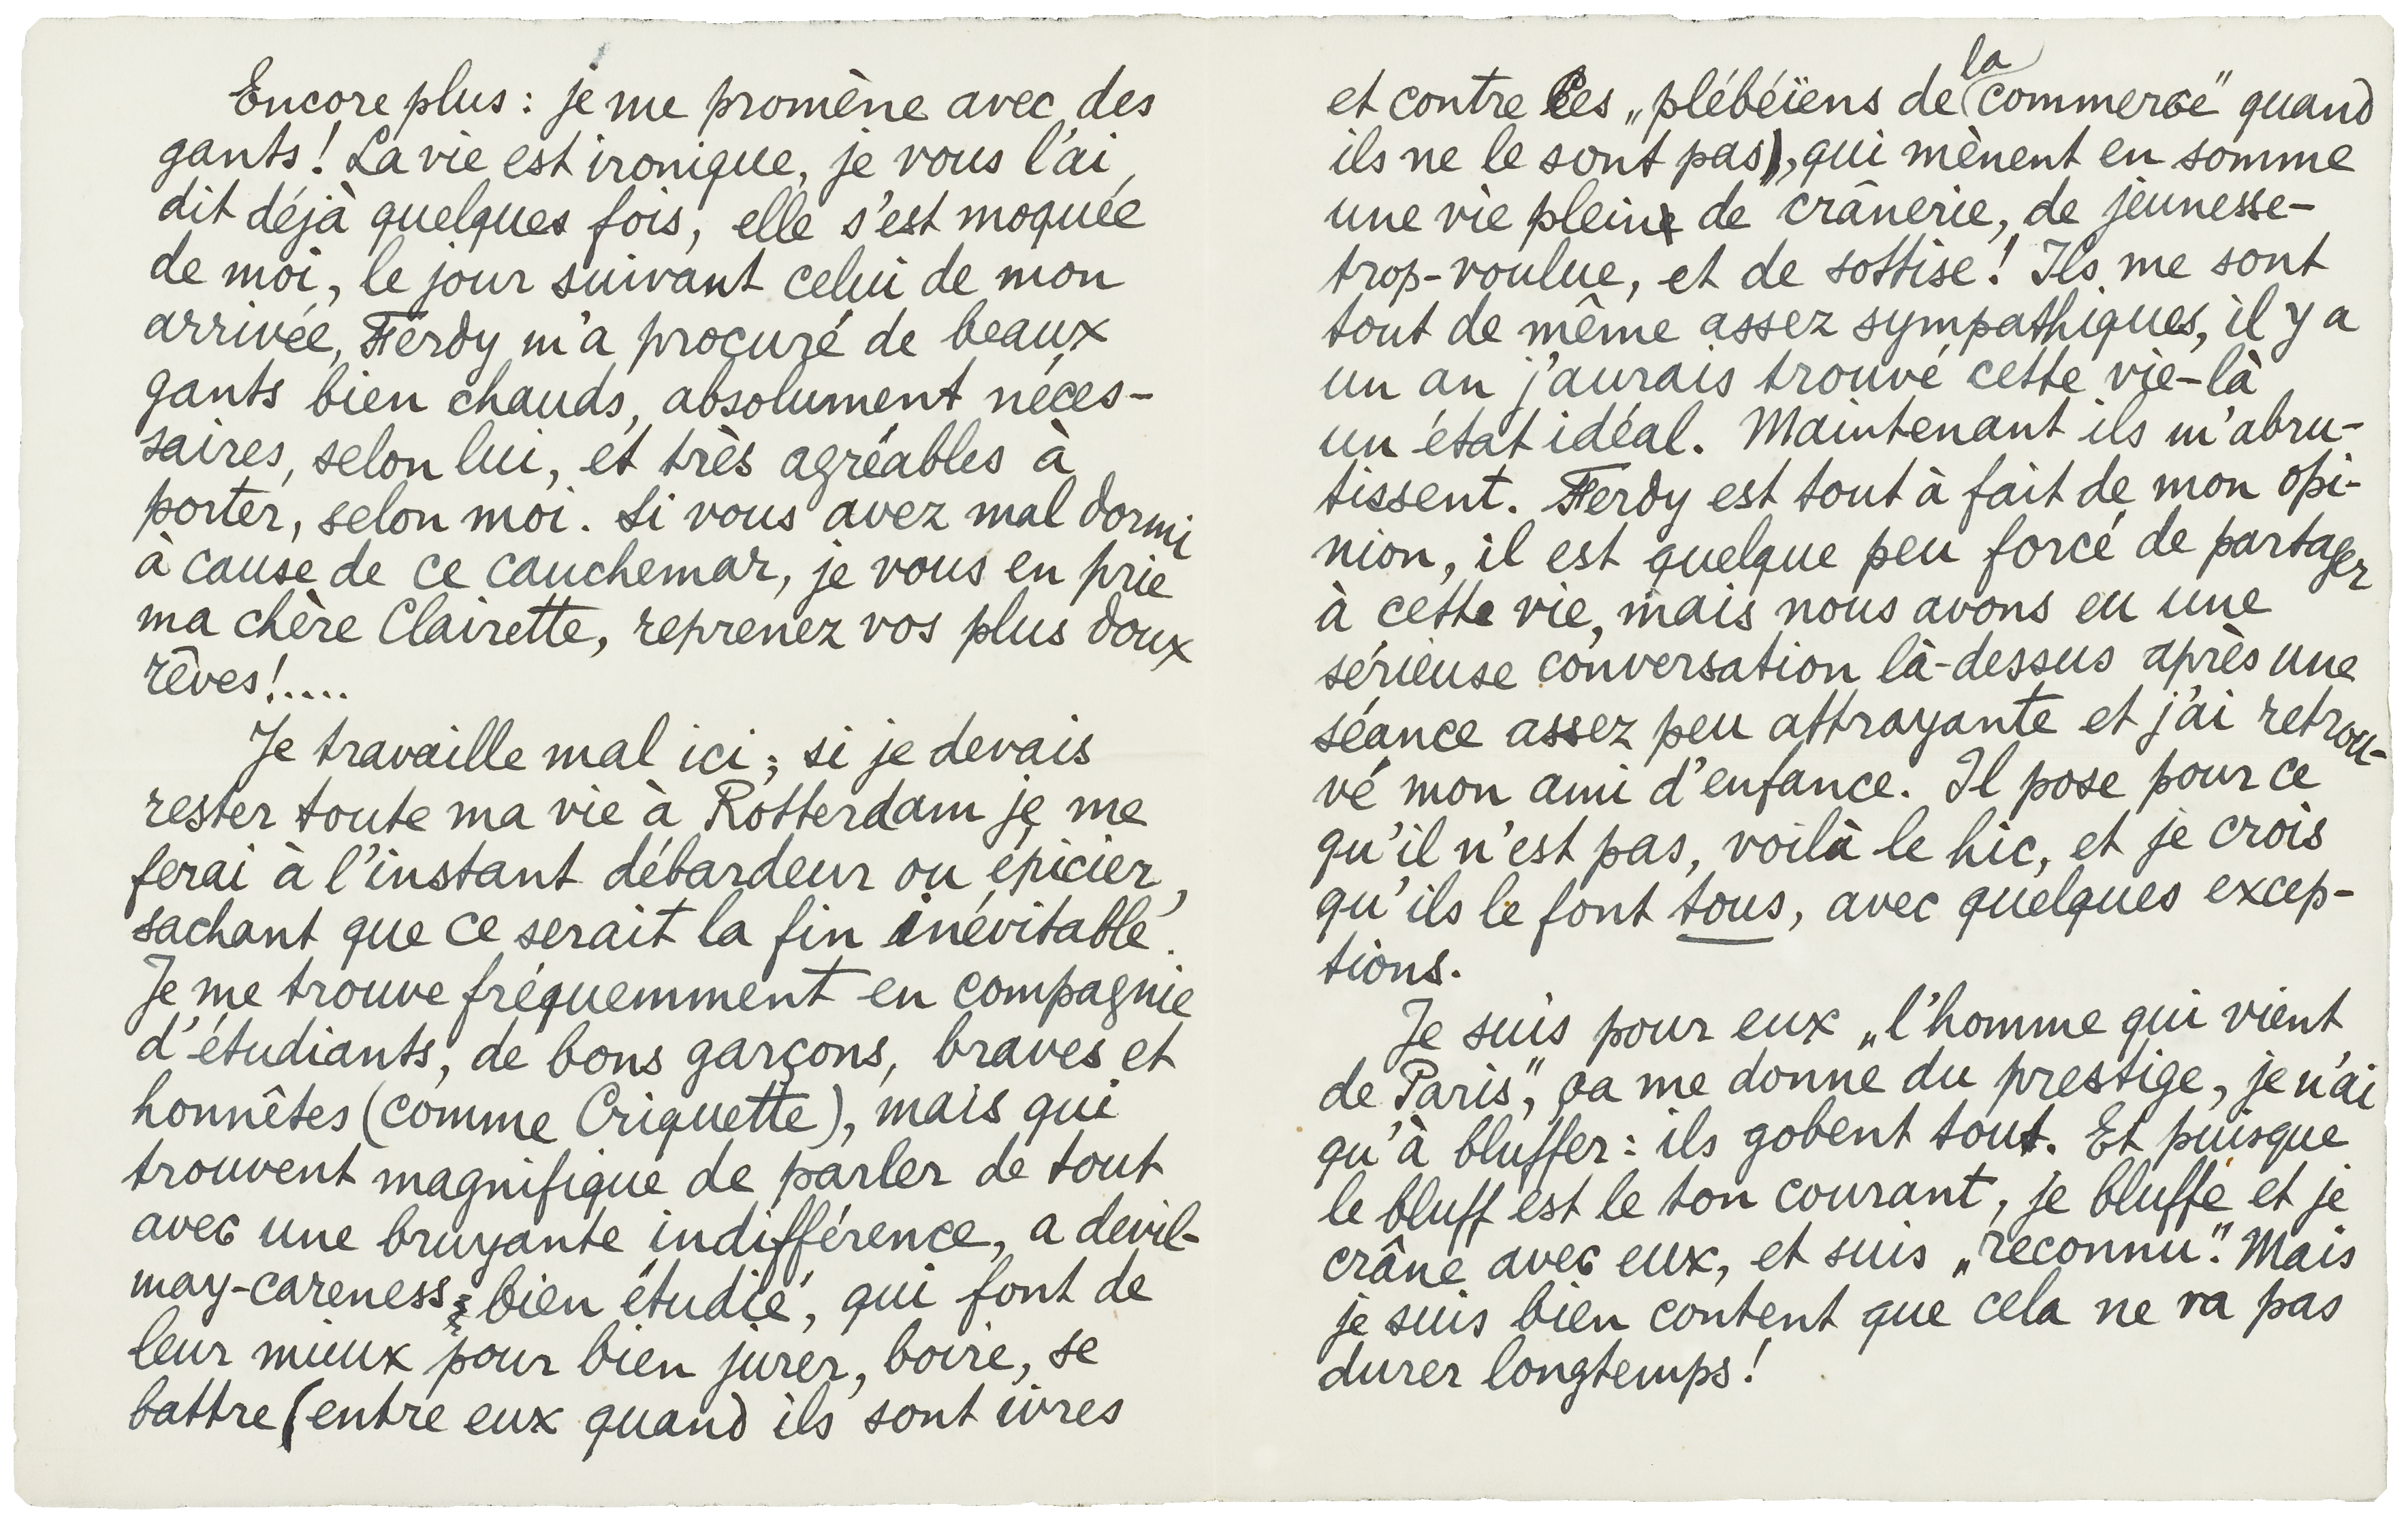 Encore plus : je me promène avec des
gants ! La vie est ironique, je vous l'ai
dit déjà quelques fois, elle s'est moquée
de moi, le jour suivant celui de mon
arrivée, Ferdy m'a procuré de beaux
gants bien chauds, absolument néces-
saires, selon lui, et très agréables à
porter, selon moi. Si vous avez mal dormi
à cause de ce cauchemar, je vous en prie
ma chère Clairette, reprenez vos plus doux
rêves!....
Je travaille mal ici ; si je devais
rester toute ma vie à Rotterdam je me
ferai à l'instant débardeur ou épicier,
sachant que ce serait la fin inévitable.
Je me trouve fréquemment en compagnie
d'étudiants, de bons garçons, braves et
honnêtes (comme Criquette), mais qui
trouvent magnifique de parler de tout
avec une bruyante indifférence, a devil-
may-careness bien étudié, qui font de
leur mieux pour bien jurer, boire, se
battre (entre eux quand ils sont ivres
et contre les „plébéïens de la commerce" quand
ils ne le sont pas), qui mènent en somme
une vie pleine de crânerie, de jeunesse-
trop-voulue, et de sottise! Ils me sont
tout de même assez sympathiques, il y a
un an j'aurais trouvé cette vie-là
un état idéal. Maintenant ils m'abru-
tissent. Ferdy est tout à fait de mon opi-
nion, il est quelque peu forcé de partager
à cette vie, mais nous avons eu une
sérieuse conversation là-dessus après une
séance assez peu attrayante et j'ai retrou-
vé mon ami d'enfance. Il pose pour ce
qu'il n'est pas, voilà le hic, et je crois
qu'ils le font tous, avec quelques excep-
tions.
Je suis pour eux „l'homme qui vient
de Paris", ça me donne du prestige, je n'ai
qu'à bluffer : ils gobent tout. Et puisque
le bluff est le ton courant, je bluffe et je
crâne avec eux, et suis „reconnu". Mais
je suis bien content que cela ne va pas
durer longtemps!